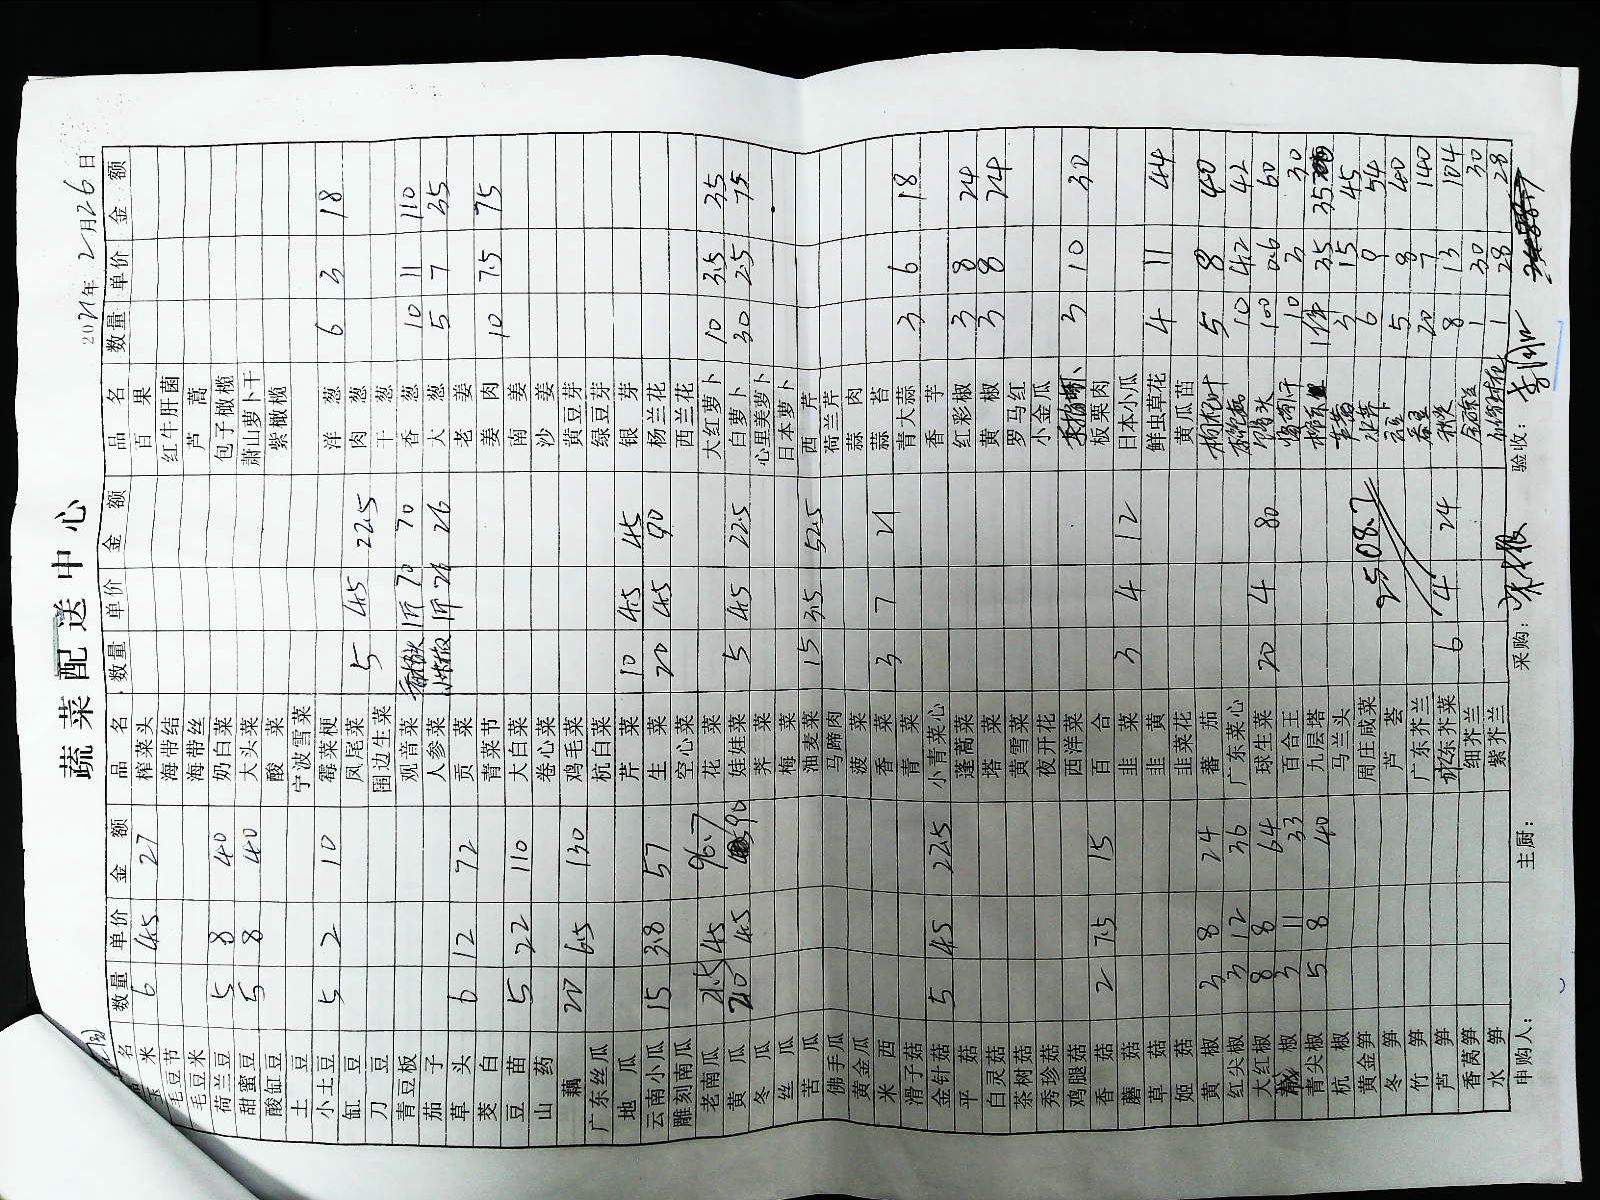 蔬菜配送中心
2021年2月26日
品名 数量 单价 金额 品名 数量 单价 金额 品名 数量 单价 金额
玉米 6 4.5 27 榨菜头 百果
毛豆节 海带结 红牛肝菌
毛豆米 海带丝 芦蒿
荷兰豆 5 8 40 奶白菜 包子橄榄
甜蜜豆 5 8 40 大头菜 萧山萝卜干
酸缸豆 酸菜 紫橄榄
土豆 宁波雪菜
小土豆 5 2 10 霉菜梗 洋葱 6 3 18
缸豆 凤尾菜 5 4.5 22.5 肉葱
刀豆 围边生菜 干葱
青豆板 观音菜 1斤 70 70 香葱 10 11 110
茄子 人参菜 1斤 26 26 大葱 5 7 35
草头 6 12 72 贡菜 老姜
茭白 青菜节 姜肉 10 7.5 75
豆苗 5 22 110 大白菜 南姜
山药 卷心菜 沙姜
藕 20 6.5 130 鸡毛菜 黄豆芽
广东丝瓜 杭白菜 绿豆芽
地瓜 芹菜 10 4.5 45 银芽
云南小瓜 15 3.8 57 生菜 20 4.5 90 杨兰花
雕刻南瓜 空心菜 西兰花
老南瓜 21.5 4.5 96.7 花菜 大红萝卜 10 3.5 35
黄瓜 20 4.5 90 娃娃菜 5 4.5 22.5 白萝卜 30 2.5 75
冬瓜 荠菜 心里美萝卜
丝瓜 梅菜 日本萝卜
苦瓜 油麦菜 15 3.5 52.5 西芹
佛手瓜 马蹄肉 荷兰芹
黄金瓜 菠菜 蒜肉
米西 香菜 3 7 21 蒜苔
滑子菇 青菜 青大蒜 3 6 18
金针菇 5 4.5 22.5 小青菜心 香芋
平菇 蓬蒿菜 红彩椒 3 8 24
白灵菇 塔菜 黄椒 3 8 24
茶树菇 黄雪菜 罗马红
秀珍菇 夜开花 小金瓜
鸡腿菇 西洋菜 3 10 30
香菇 2 7.5 15 百合 板栗肉
蘑菇 韭菜 3 4 12 日本小瓜
草菇 韭黄 鲜虫草花 4 11 44
姬菇 韭菜花 黄瓜苗
黄椒 3 8 24 蕃茄 5 8 40
红尖椒 3 12 36 广东菜心 10 4.2 42
大红椒 8 8 64 球生菜 20 4 80 100 0.6 60
椒 3 11 33 百合王 10 3 30
青尖椒 5 8 40 九层塔 1件 35 35
杭椒 马兰头 3 15 45
黄金笋 周庄咸菜 水芹 6 9 54
冬笋 芦荟 5 8 40
竹笋 广东芥兰 20 7 140
芦笋 广东芥菜 6 4 24 8 13 104
香莴笋 细芥兰 1 30 30
水笋 紫芥兰 1 28 28
2508.7
申购人： 主厨： 采购： 验收：